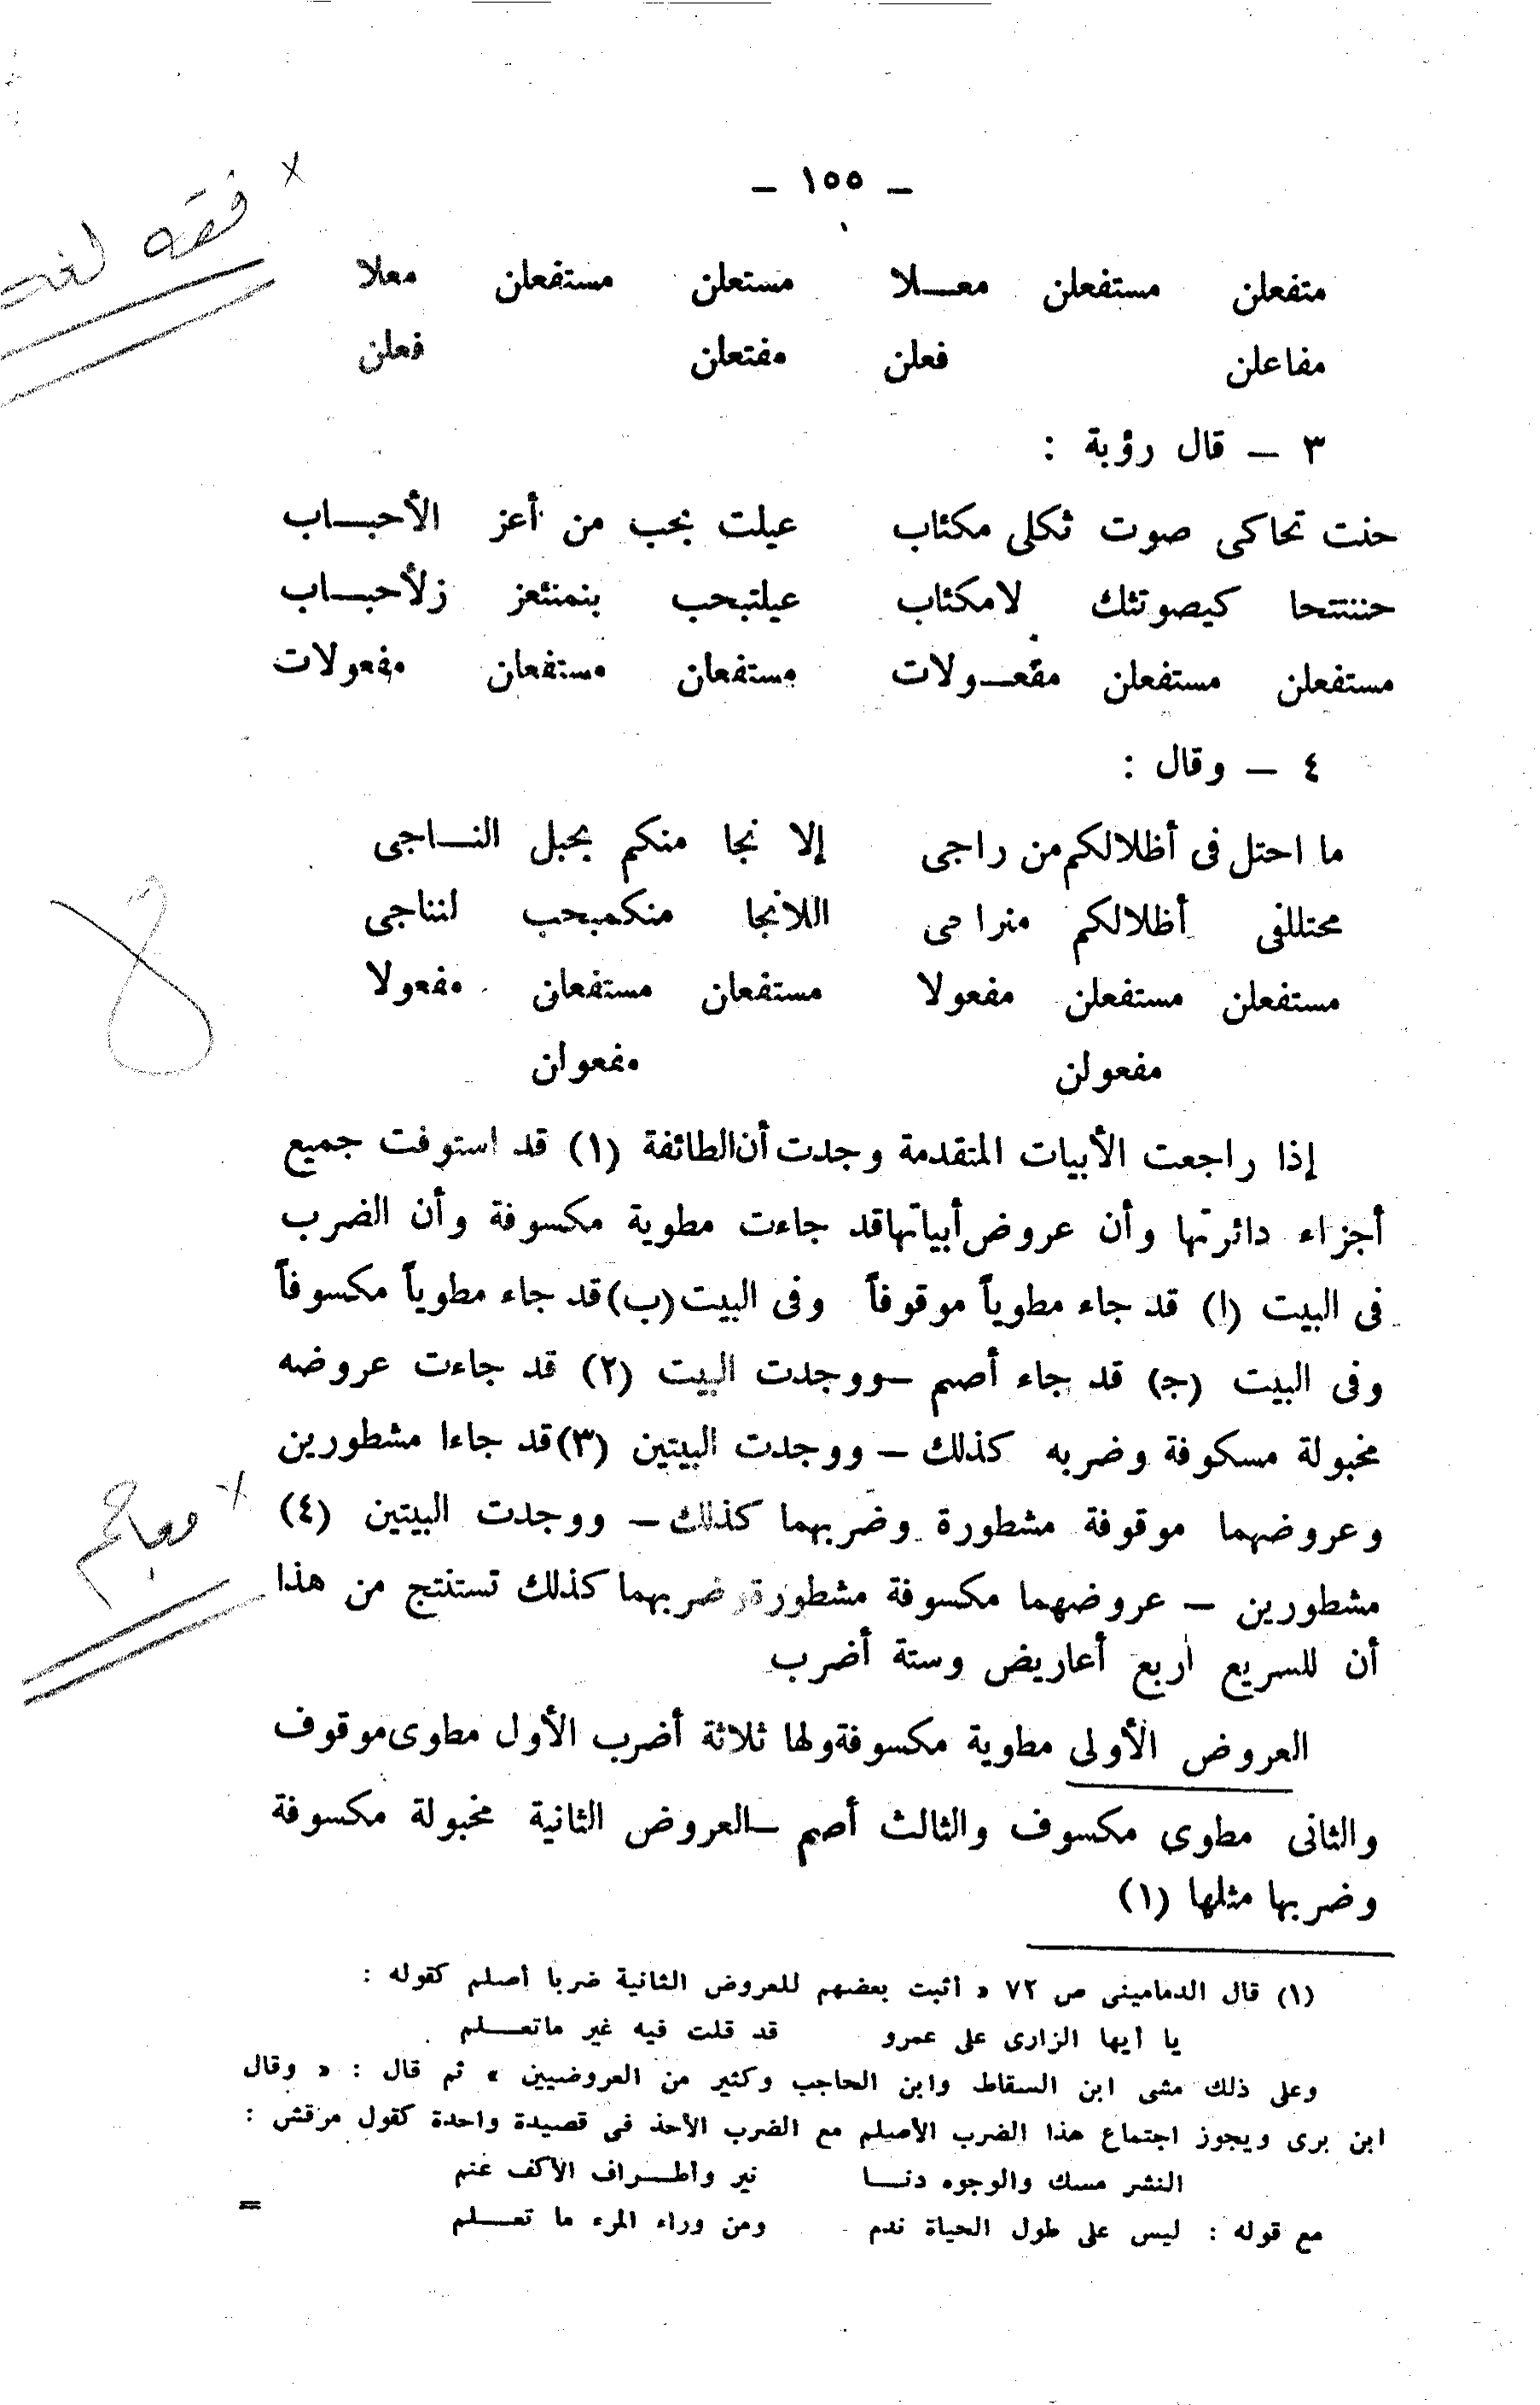 – ١٥٥ –
× فقه لغة
متفعلن مستفعلن معـــلا مستعلن مستفعلن معلا
مفاعلن فعلن مفتعلن فعلن
٣ – قال رؤبة :
حنت تحاكى صوت ثكلى مكثاب عيلت بحب من أعز الأحبـــاب
حننتتحا كيصوتثك لامكثاب عيلتبحب بنمنئعز زلأحبـــاب
مستفعلن مستفعلن مفعـــولات مستفعان مستفعان مفعولات
٤ – وقال :
ما احتل فى أظلالكم من راجى إلا نجا منكم بحبل النـــاجى
محتللفى أظلالكم منراجى اللانجا منكمبحب لنناجى
مستفعلن مستفعلن مفعولا مستفعان مستفعان مفعولا
مفعولن مفعوان
إذا راجعت الأبيات المتقدمة وجدت أن الطائفة (١) قد استوفت جميع
أجزاء دائرتها وأن عروض أبياتها قد جاءت مطوية مكسوفة وأن الضرب
فى البيت (ا) قد جاء مطوياً موقوفاً وفى البيت (ب) قد جاء مطوياً مكسوفاً
وفى البيت (ج) قد جاء أصم – ووجدت البيت (٢) قد جاءت عروضه
مخبولة مسكوفة وضربه كذلك – ووجدت البيتين (٣) قد جاءا مشطورين
وعروضهما موقوفة مشطورة وضربهما كذلك – ووجدت البيتين (٤)
× معاجم
مشطورين – عروضهما مكسوفة مشطورة وضربهما كذلك تستنتج من هذا
أن للسريع أربع أعاريض وستة أضرب
العروض الأولى مطوية مكسوفة ولها ثلاثة أضرب الأول مطوى موقوف
والثانى مطوى مكسوف والثالث أصم – العروض الثانية مخبولة مكسوفة
وضربها مثلها (١)
(١) قال الدمامينى ص ٧٢ « أثبت بعضهم للعروض الثانية ضربا أصلم كقوله :
يا أيها الزارى على عمرو قد قلت فيه غير ماتعـــلم
وعلى ذلك مشى ابن السقاط وابن الحاجب وكثير من العروضيين » ثم قال : « وقال
ابن برى ويجوز اجتماع هذا الضرب الأصلم مع الضرب الأحذ فى قصيدة واحدة كقول مرقش :
النشر مسك والوجوه دنـــا نير وأطـــراف الأكف عنم
مع قوله : ليس على طول الحياة ندم ومن وراء المرء ما تعـــلم
=